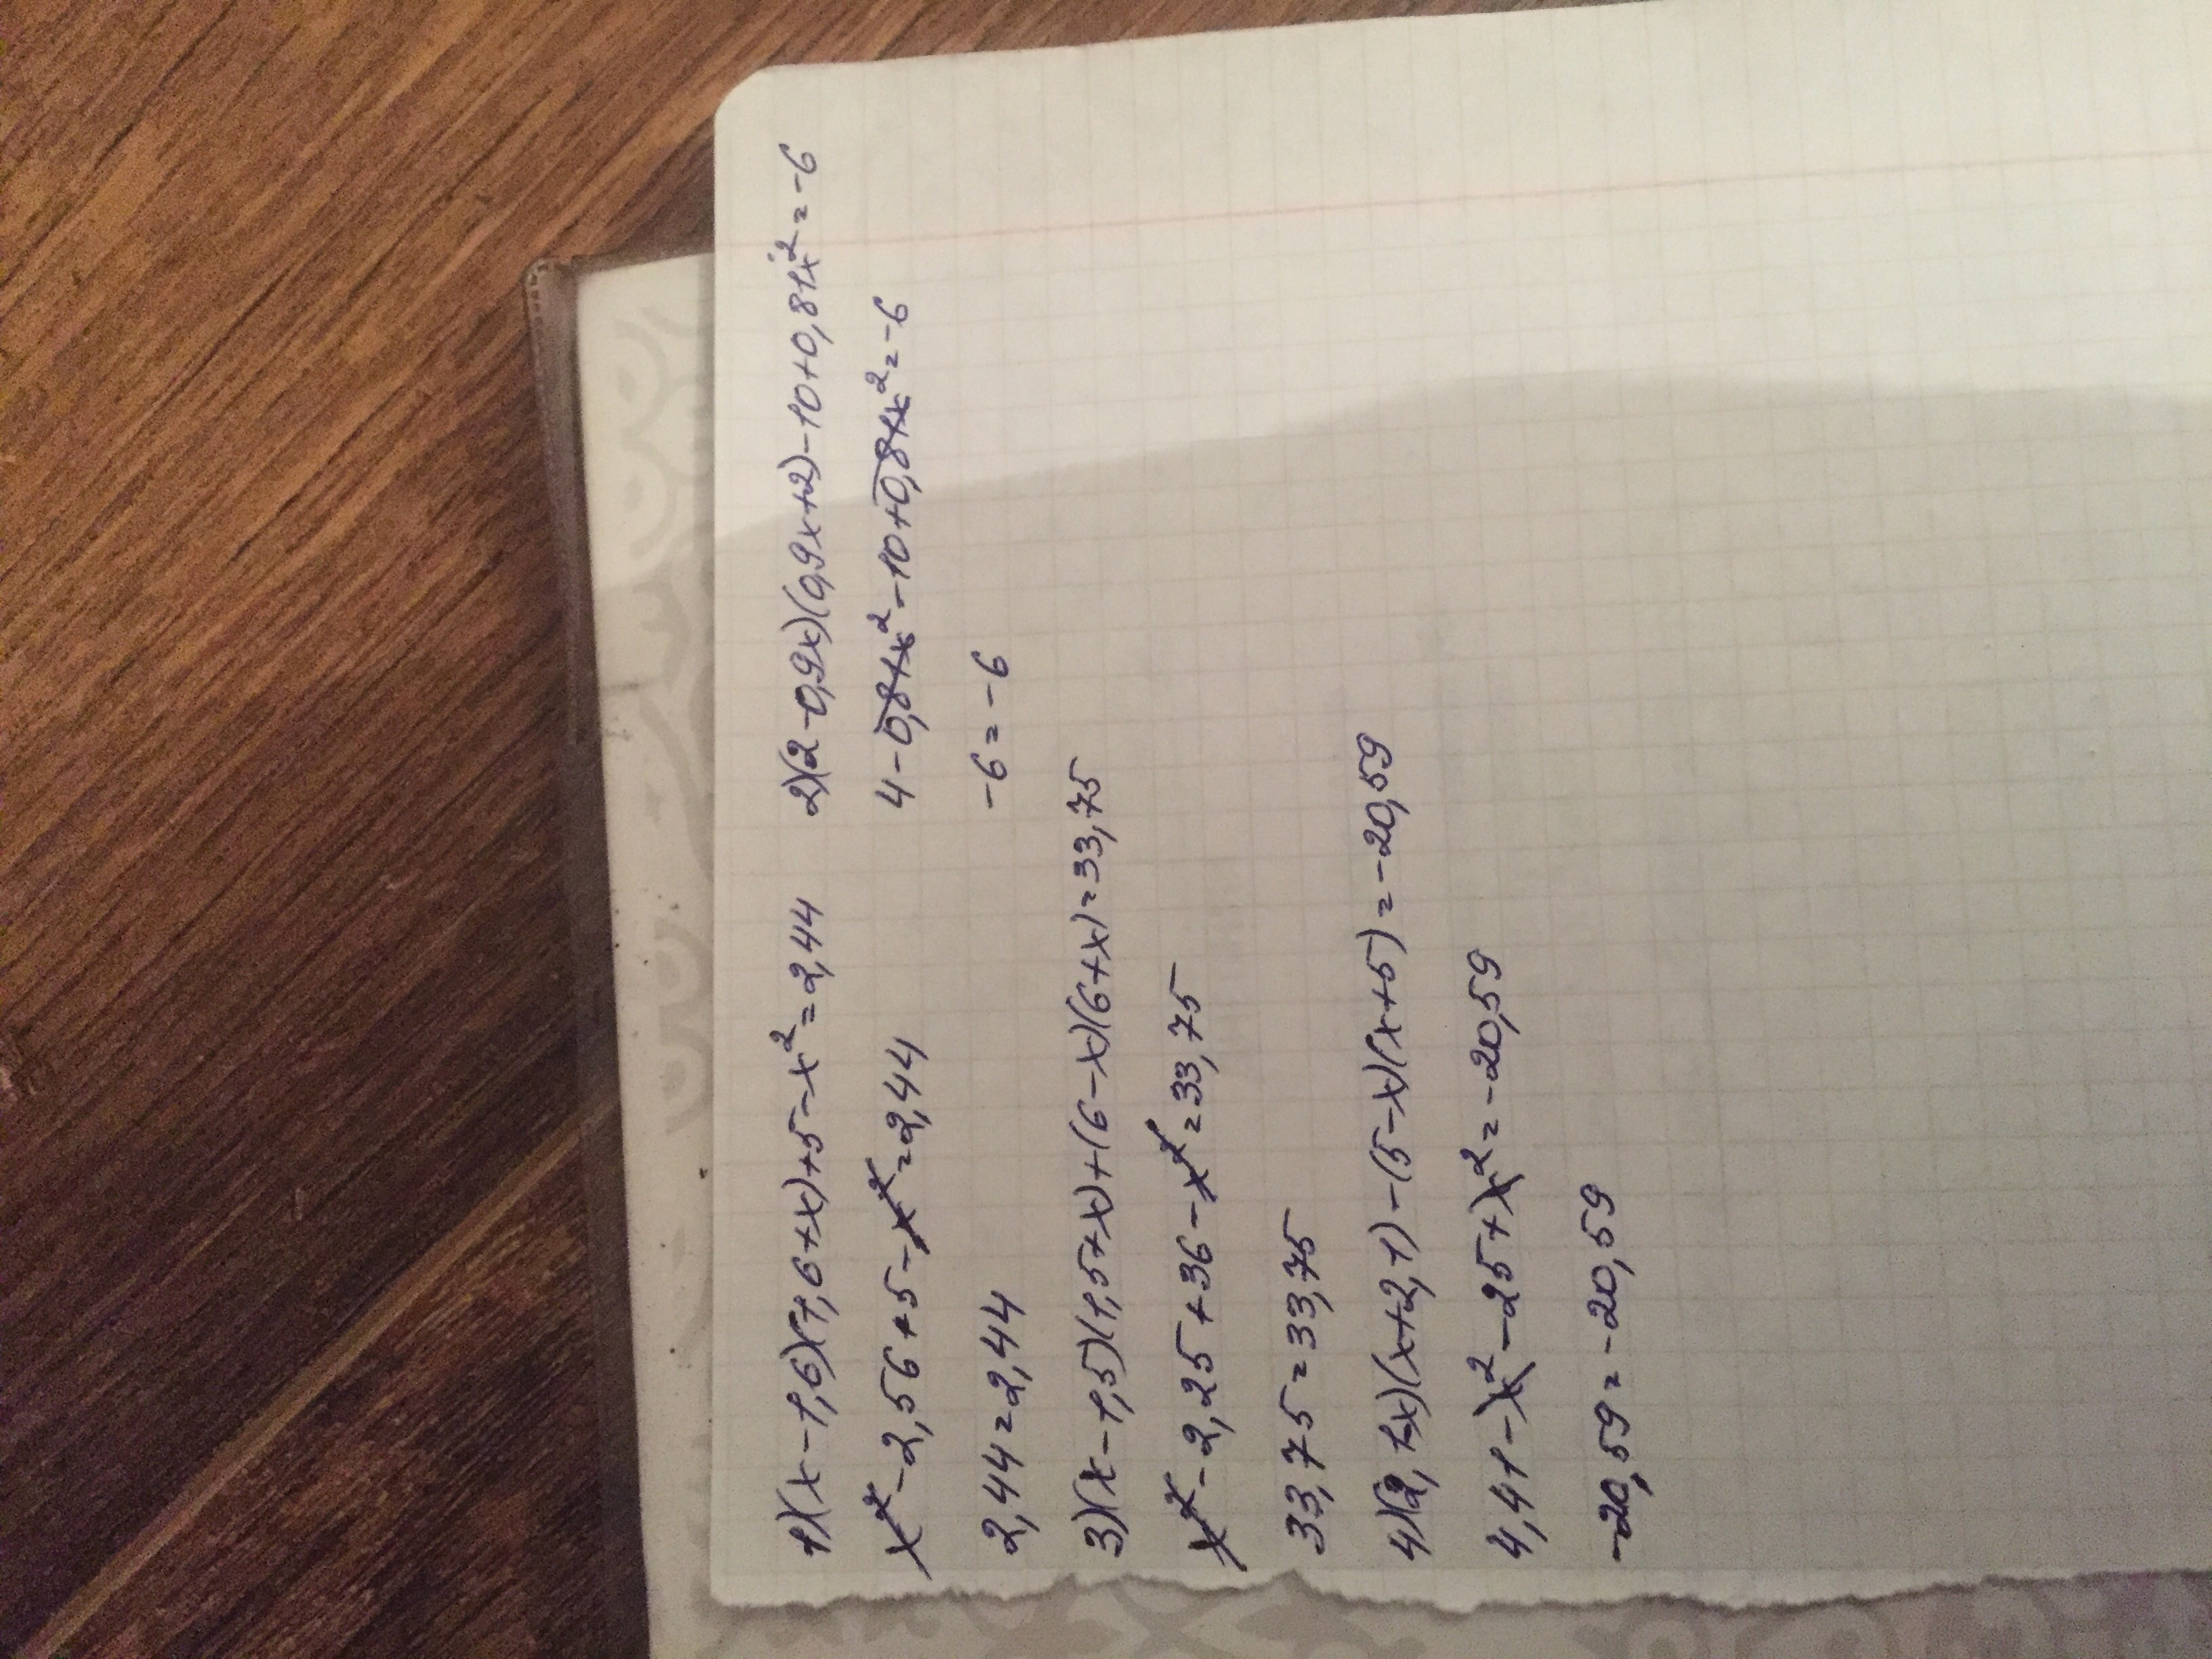 1)(x-1,6)(1,6+x)+5-x²=2,44 2)(2-0,9x)(0,9x+2)-10+0,81x²=-6
x²-2,56+5-x²=2,44 4-0,81x²-10+0,81x²=-6
2,44=2,44 -6=-6
3)(x-1,5)(1,5+x)+(6-x)(6+x)=33,75
x²-2,25+36-x²=33,75
33,75=33,75
4)(2,1x)(x+2,1)-(5-x)(x+5)=-20,59
4,41-x²-25+x²=-20,59
-20,59=-20,59